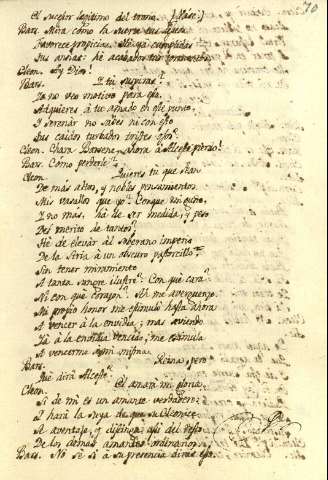 70
El sucesor legitimo del trono. (Vase.)
Bars. Mira cómo la suerte tus ideas
favorece propicia; ya cumplidas
Sus ansias: he acabado tus tormentos.
Cleon. Ay Dios!
Bars. Y tu suspiras?
Yo no veo motivo para ello.
Adquieres à tu amado en este punto,
Y serenar no sabes ni con esto
Tus caidos turbados tristes ojos?
Cleon. Chara Barsene, ahora à Alceste pierdo!
Bars. Cómo perderle?
Cleon. Quieres tu que han
De mas altos, y nobles pensamientos
Mis vasallos que yo? Conque un genio,
Y no mas, há de ser medida, y peso
Del merito de tantos?
Hé de elevár al soberano imperio
De la Siria à un obscuro pastorcillo?
Sin tener miramiento
A tanta sangre ilustre? Con què cara?
Ni con què corazon? Ah me averguenzo.
Mi propio honor me estimuló hasta ahora
A vencer à la envidia; mas habiendo
Yà à la envidia vencido, me estimula
A vencerme à mi misma.
Bars. Reina, pero
Què dirá Alceste?
Cleon. El amará mi gloria,
Si de mi es un amante verdadero;
Y hará la suya de que su
A aventaje, y distinga así del resto
De los demas amantes ordinarios.
Bars. No sé si à su presencia dirás eso.